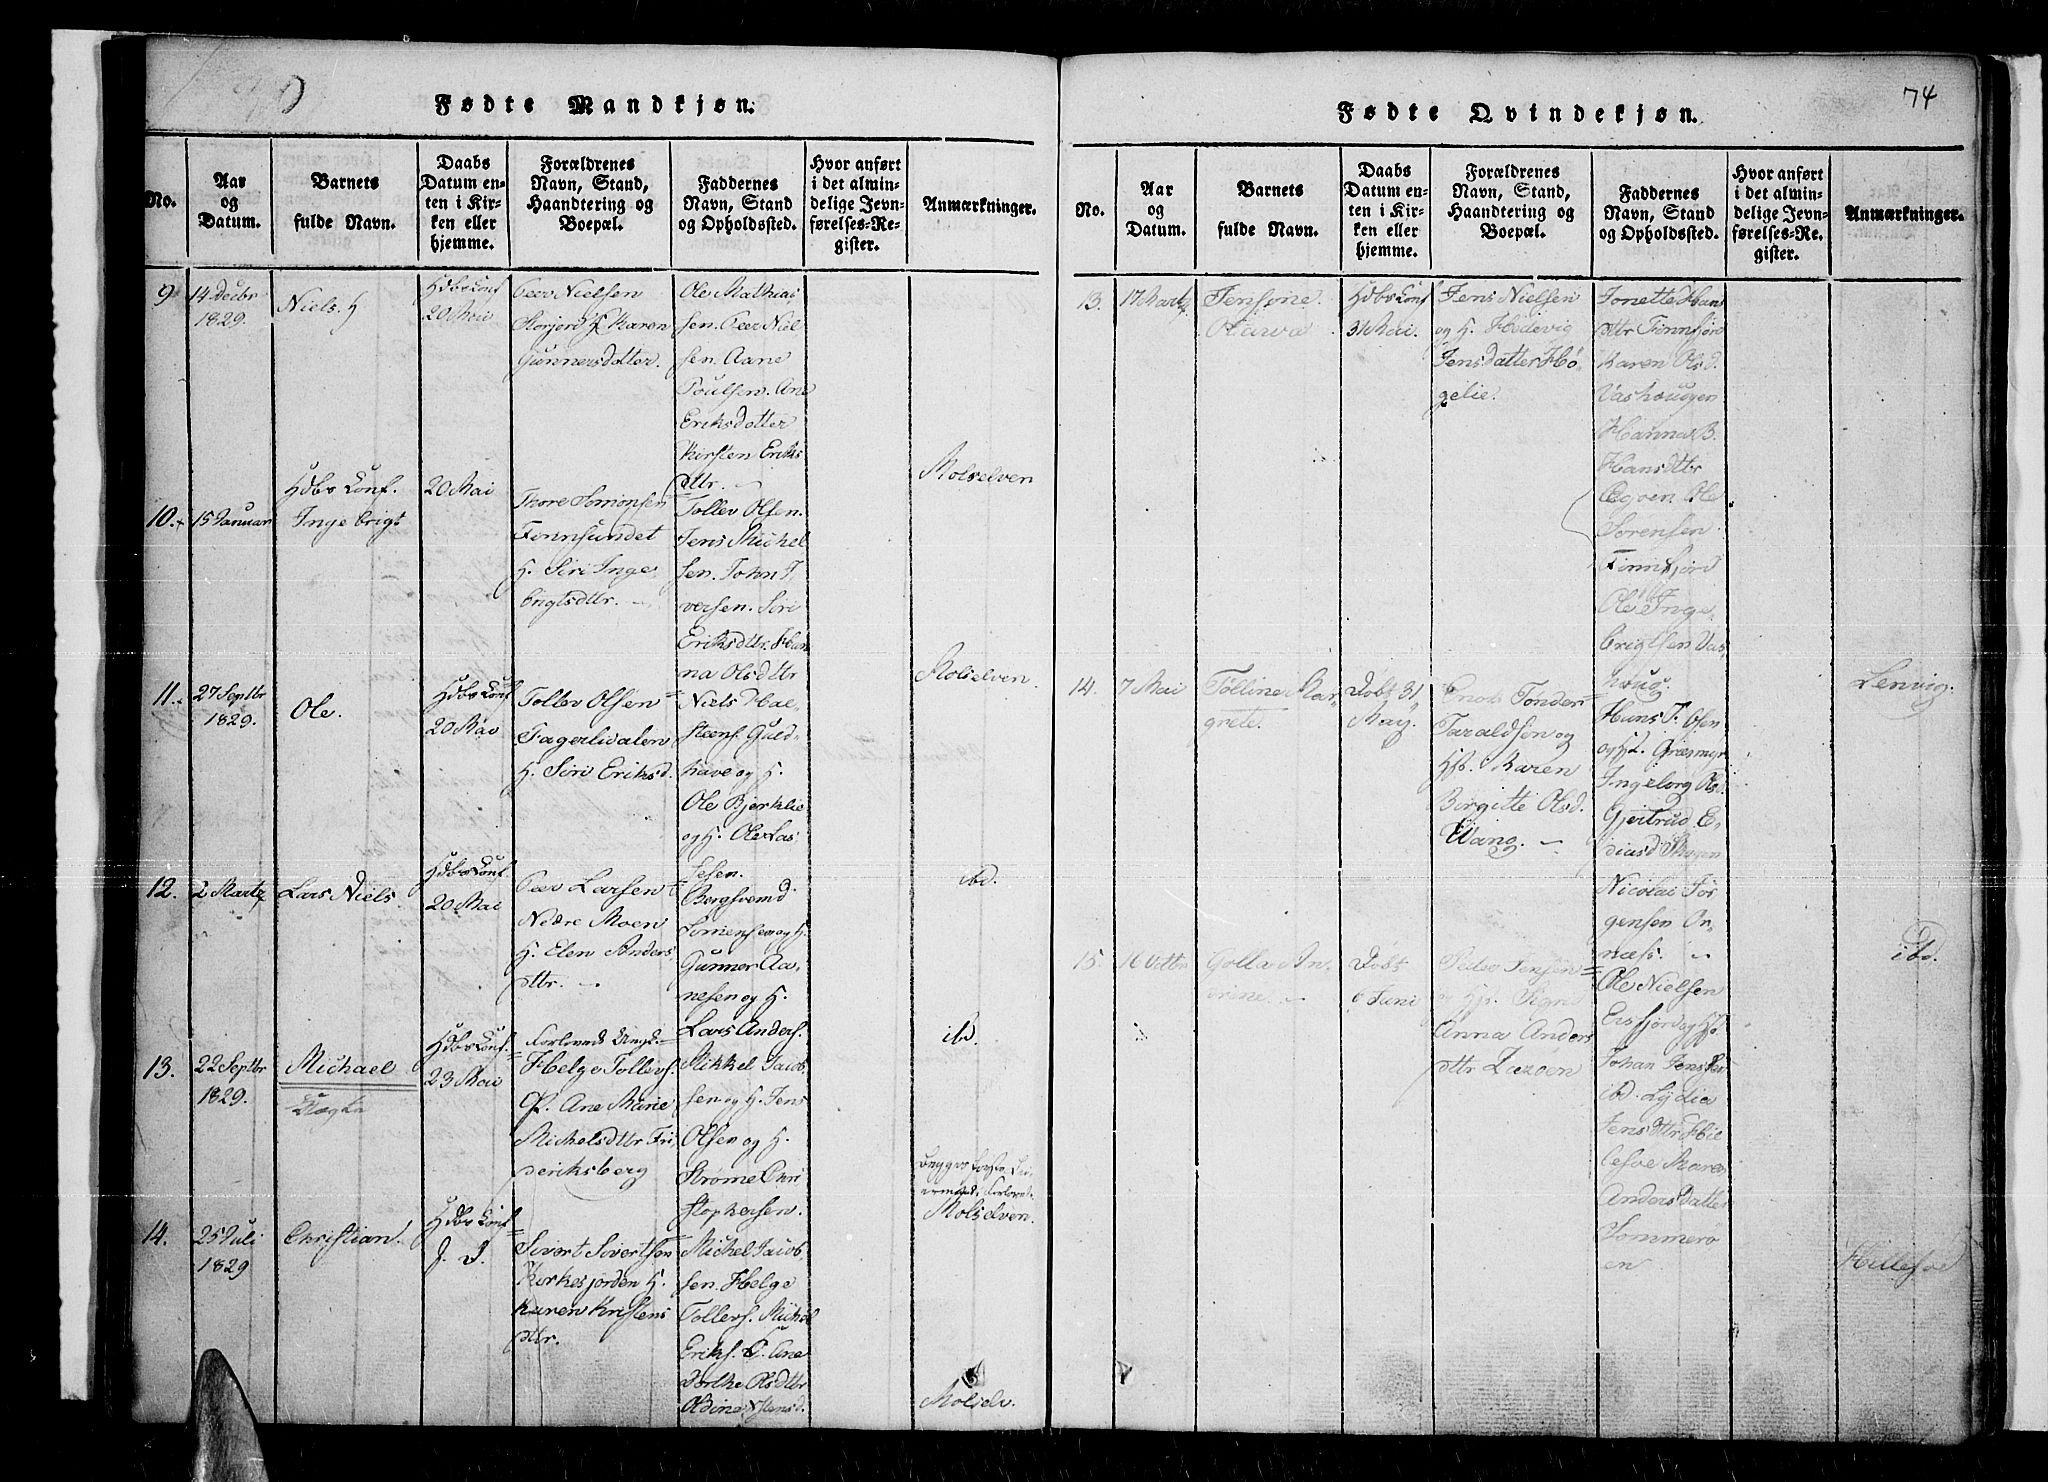 Fødte Mandkjøn.
No.
Aar
og
Datum.
Barnets
fulde Navn.
Daabs
Datum en-
ten i Kir-
ken eller
hjemme.
Forældrenes
Navn, Stand,
Haandtering og
Boepæl.
Faddernes
Navn, Stand
og Opholdssted.
Hvor anført
i det almin-
delige Jevn-
førelses-Re-
gister.
Anmærkninger.
9
14 Decbr
1829.
Niels. H
Hdbs Conf
20 Mai
Peer Nielsen
Storjord H Karen
Gunnersdatter.
Ole Mathias
sen. Peer Niel
sen. Aane
Poulsen. Ane
Eriksdatter
Kirsten Eriks
dttr.
Molselven
10.
15 Januar
Hdbs Conf.
Ingebrigt
20 Mai
Thore Somonsen
Finnsundet
H. Siri Inge
brigtsdttr.
Tollev Olsen.
Jens Michel
sen. John I
versen. Siri
Eriksdttr. Han
na Olsdttr
Molselven.
11.
27 Septbr
1829.
Ole.
Hdbs Conf
20 Mai
Tollev Olsen
Fagerlidalen
H. Siri Eriksd.
Niels Hae-
steens. Guld-
have og H.
Ole Bjerklie
og H. Ole Las
sesen.
ibd.
12.
2 Martz
Lars Niels
Hdbs Conf
20 Mai
Peer Larsen
Nedre Moen
H. Elen Anders
dttr.
Bergsvend
Somensen og H
Gunner Aa-
nesen og H.
Lars Anders.
ibd.
13.
22 Septbr
1829.
Michael
Uægte
Hdbs Conf.
23 Mai
Forlovede Ungd.
Helge Tollevs.
P. Ane Marie
Michelsdttr Fri
deriksberg
Mikkel Jacob
sen og H. Jens
Olsen og H.
Strøme Chri
stophersen.
Molselven.
14.
25 Juli
1829
Christian.
Hdbs Conf
J. D.
Sivert Sivertsen
Kirkesjorden H.
Karen Kristens
dttr.
Michel Jacob
sen. Helge
Tollevs. Michel
Eriks. P. Ane
Dorthe Olsdttr
Oldine Hansd.
Molselv.
74
Fødte Qvindekjøn.
No.
Aar
og
Datum.
Barnets
fulde Navn.
Daabs
Datum en-
ten i Kir-
ken eller
hjemme.
Forældrenes
Navn, Stand,
Haandtering og
Boepæl.
Faddernes
Navn, Stand
og Opholdssted.
Hvor anført
i det almin-
delige Jevn-
førelses-Re-
gister.
Anmærkninger.
13.
17 Martz
Jensine
Olava
Hdbs Conf
31 Mai.
Jens Nielsen
og H. Hedevig
Jensdatter Hø
gelie.
Jonette Hans
dttr Finnfjor
Karen Olsd.
Vashougen
Hanna B.
Hansdttr
Ole
Sørensen
Finnfjord
Ole Inge
brigtsen Vas
houg.
Lenvig.
14.
7 Mai
Tolline Mar-
grete.
Døbt 31
May.
Enok Tønder
Taraldsen og
Hst. Karen
Birgitte Olsd.
Wang.
Hans T. Olsen
og H. Græsmyr
Ingeborg Olsd.
Gjertrud E-
diasd Skogen
Nicolai Jør
gensen On
næss.
ibd.
15.
16 Octbr
Golla An-
drine.
Døbt
6 Juni
Peder Jensen
og Hst. Signe
Anna Anders
dttr Laxøen
Ole Nielsen
Ersfjord og Hst.
Johan Jens Per
ibd. Lydia
Jensdttr Hil
lesøe Maren
Anders Datter
Sommerø
en
Hillesøe